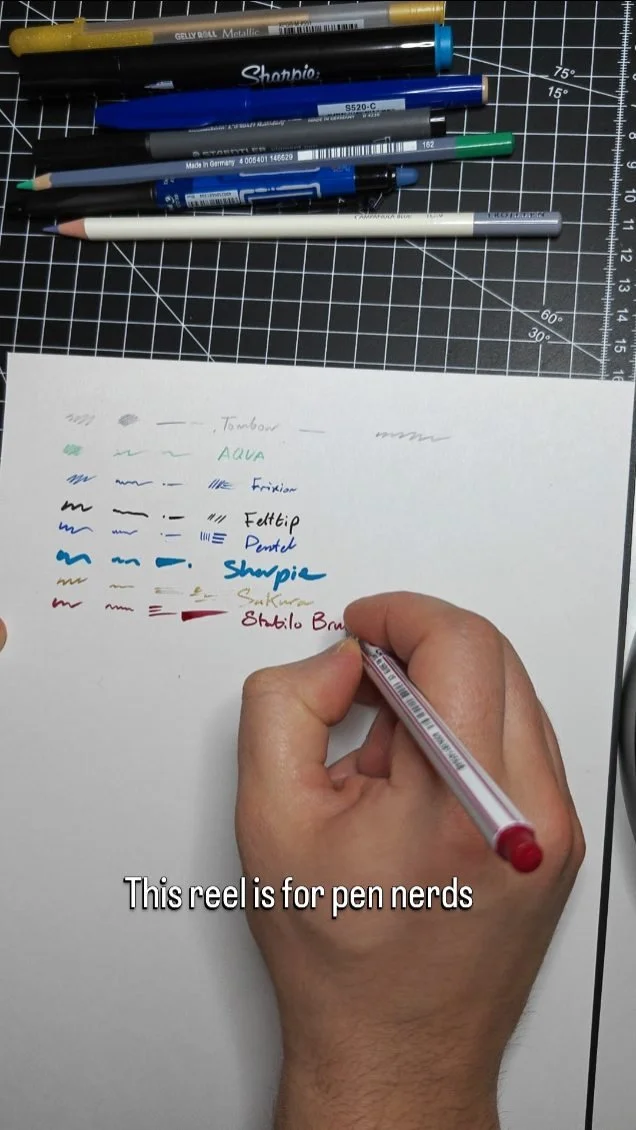 GELLY ROLL Metallic
Sharpie
75°
15°
S520-C
STAEDTLER
Made in Germany 4 005401 146629 162
8
9
10
CAMPANULA BLUE
11
12
13
60°
14
30°
15
Tombow
AQUA
Frixion
Felttip
Pentel
Sharpie
Sakura
Stabilo Bru
This reel is for pen nerds